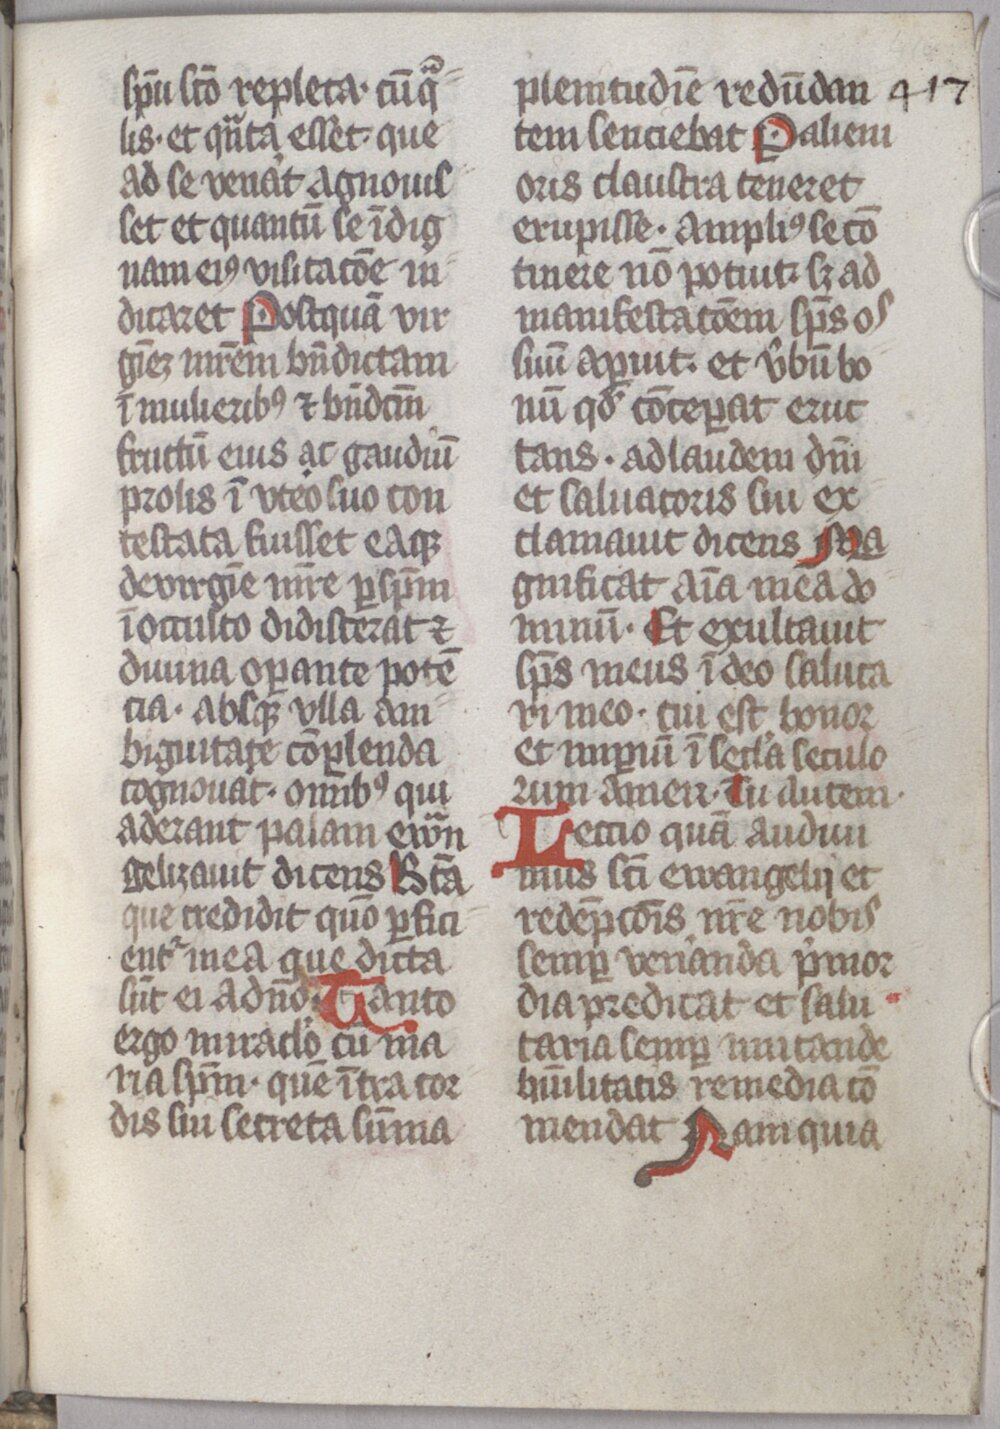 sp̄u sc̄o repleta· cū q̄
lis· et qn̄ta esset· que
ad se ven̾at agnouis
set et quantū se īdig
nam eiꝰ visitacōe in
dicaret Postquā vir
gīeꝫ mr̄em bn̄dictam
ī mulieribꝰ ⁊ bn̄dcm̄
fructū eius ac gaudiū
prolis ī vteo suo con
testata fuisset eaqꝫ
de virgīe mr̄e ꝑ sp̄m
ī occulto didicerat ⁊
diuina oꝑante potē
cia· absqꝫ vlla am
biguitate cōplenda
cognouat· omībꝰ qui
aderant palam ewān
gelizauit dicens Bt̄a
que credidit quō ꝑfici
ent᷑ mea que dicta
sūt ei a dn̄o· Tanto
ergo miraclo cū ma
ria sp̄m· quē ītra cor
dis sui secreta sūma
plenitudīe redūdan 417
tem senciebat Paliem
oris claustra teneret
erupisse· Ampliꝰ se cō
tinere nō potuit· sꝫ ad
manifestacōem sp̄s os
suū apuit· et v̾bū bo
nū qd̄ cōceꝑat eruc
tans· ad laudem dn̄i
et saluatoris sui ex
clamauit dicens Ma
gnificat aīa mea do
minū· Et exultauit
sp̄s meus ī deo saluta
ri meo· cui est honor
et imꝑiū ī secl̾a seculo
rum Amen· Tu autem·
Lectio quā audiui
mus sc̄i ewangelij et
redēpcōis nr̄e nobis
semꝑ ven̾anda p̾mor
dia predicat et salu
taria semꝑ imitande
hūilitatis remedia cō
mendat Nam quia